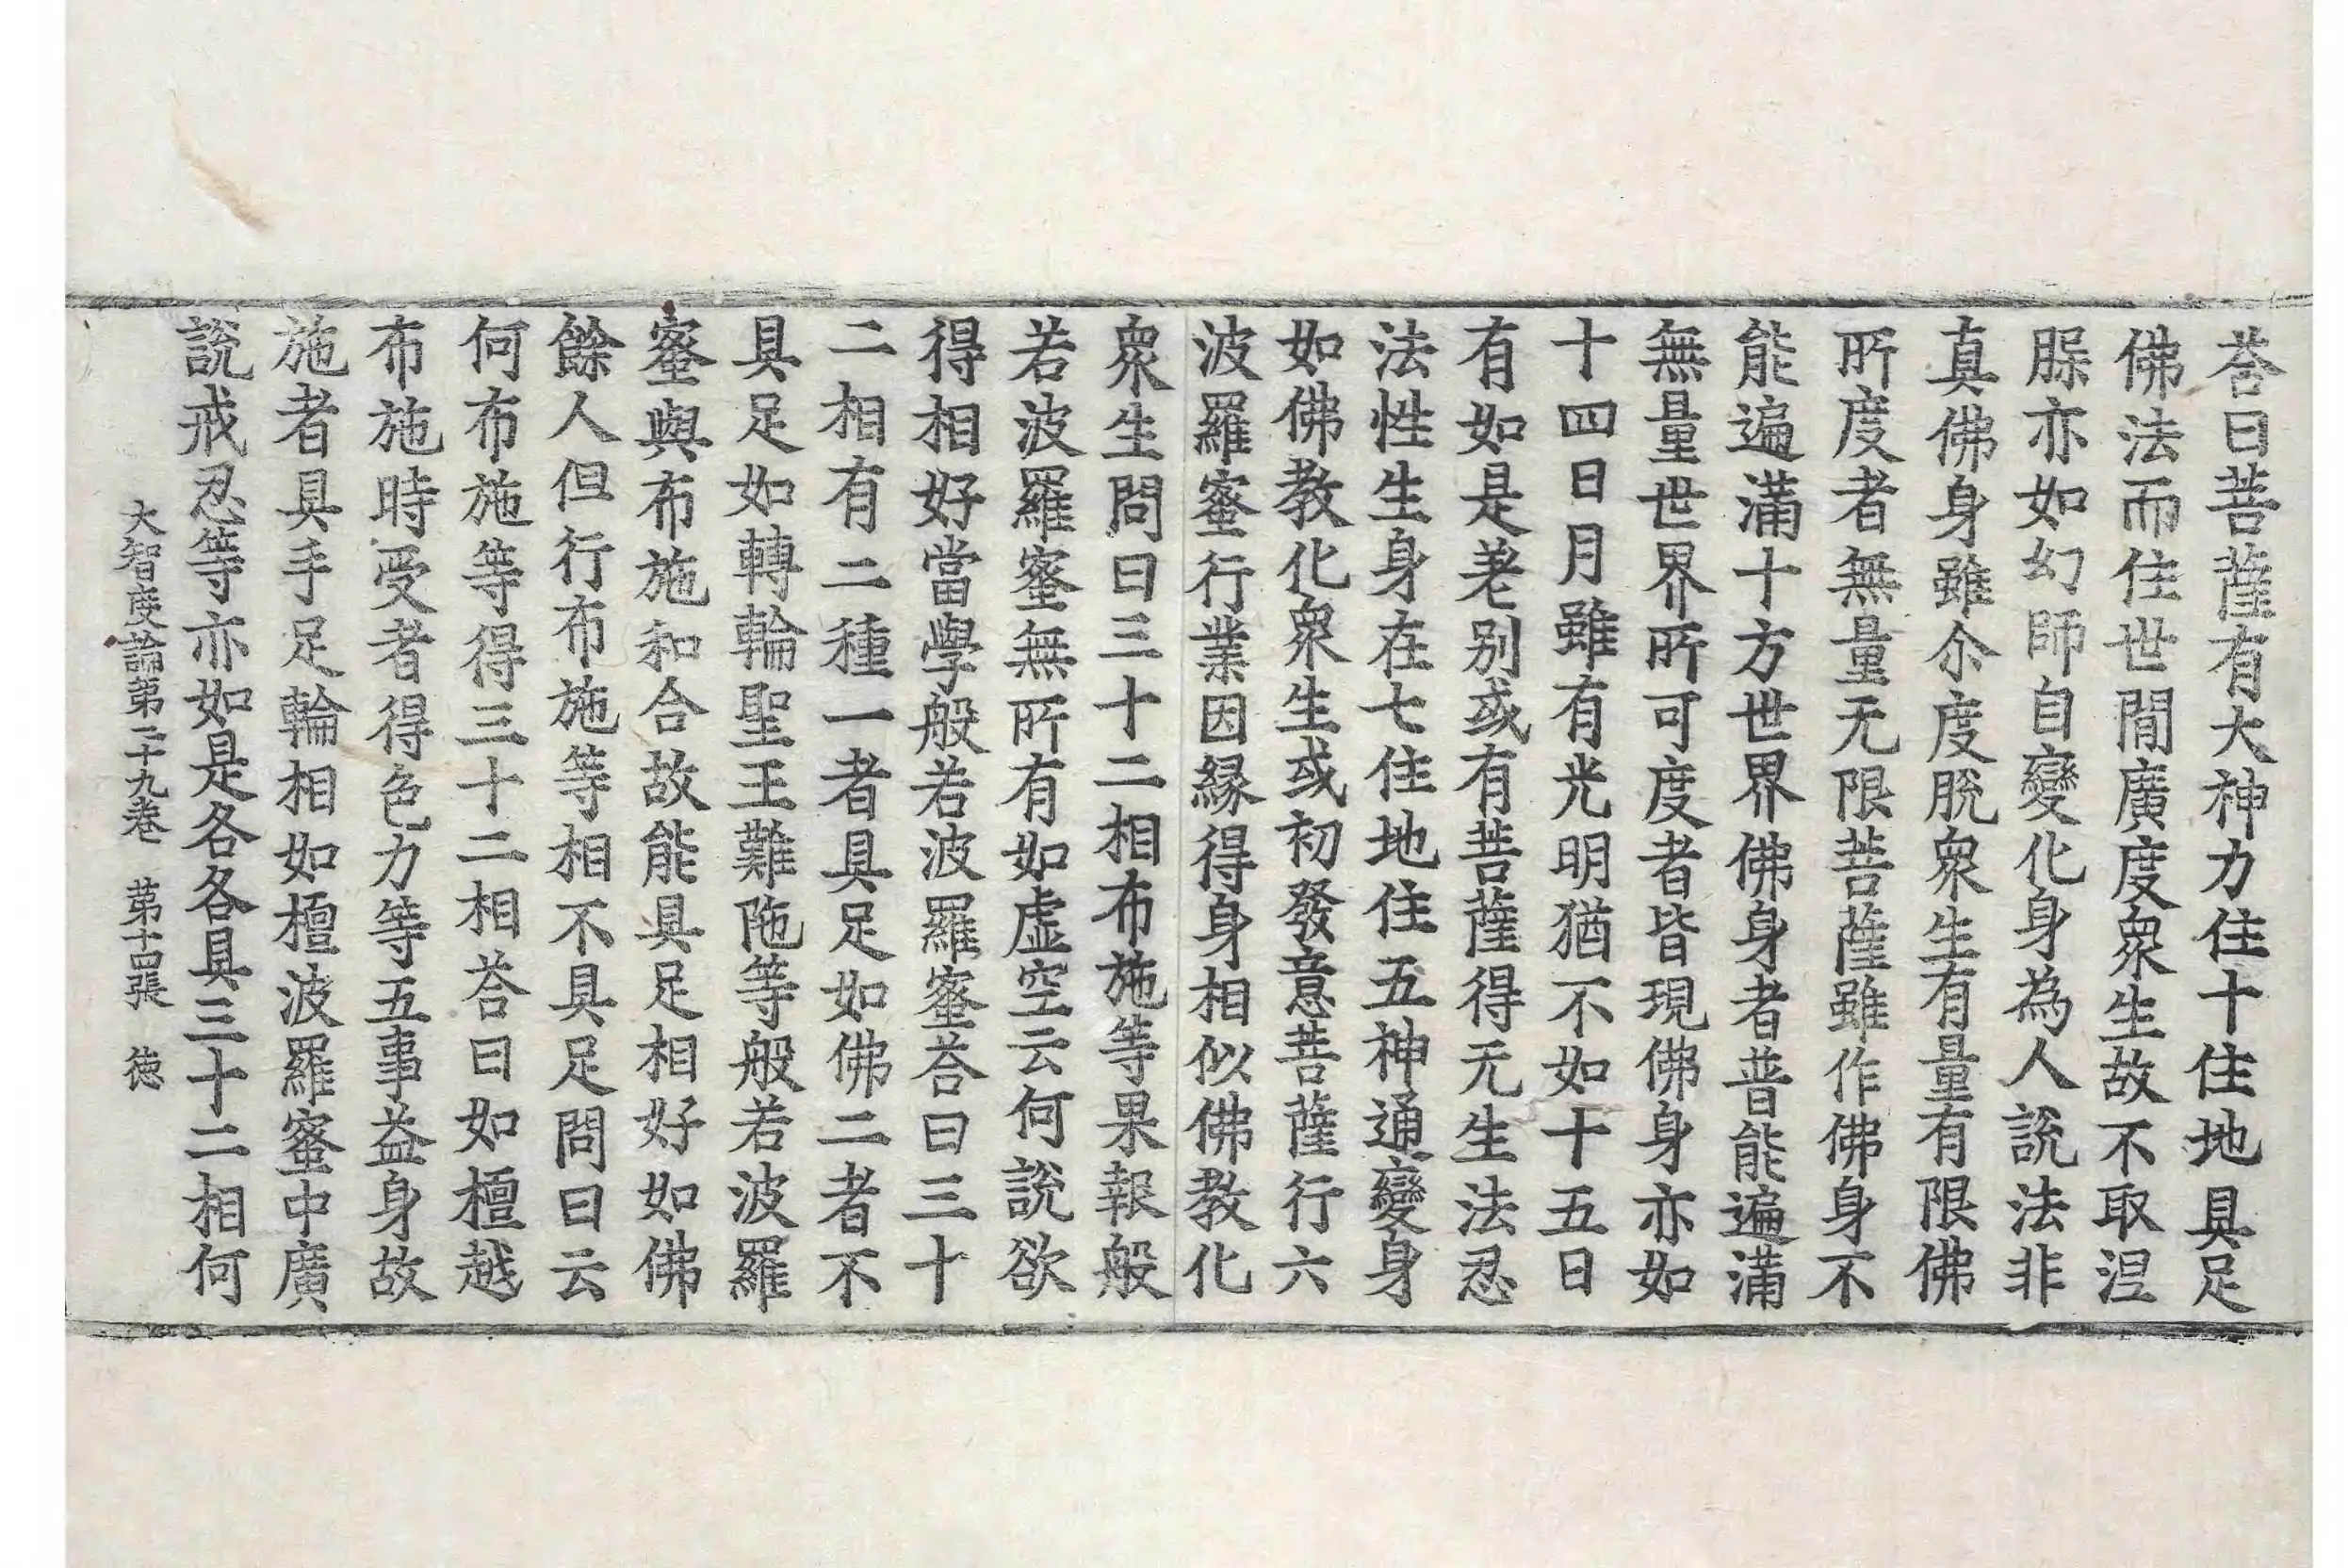 荅曰菩薩有大神力住十住地具足
佛法而住世閒廣度衆生故不取涅
脲亦如幻師自變化身為人說法非
真佛身雖尒度脫衆生有量有限佛
所度者無量无限菩薩雖作佛身不
能遍滿十方世界佛身者普能遍滿
無量世界所可度者皆現佛身亦如
十四日月雖有光明猶不如十五日
有如是差别或有菩薩得无生法忍
法性生身在七住地住五神通變身
如佛教化衆生或初發意菩薩行六
波羅蜜行業因緣得身相似佛教化
衆生問曰三十二相布施等果報般
若波羅蜜無所有如虛空云何說欲
得相好當學般若波羅蜜荅曰三十
二相有二種一者具足如佛二者不
具足如轉輪聖王難陁等般若波羅
蜜與布施和合故能具足相好如佛
餘人但行布施等相不具足問曰云
何布施等得三十二相荅曰如檀越
布施時受者得色力等五事益身故
施者具手足輪相如檀波羅蜜中廣
說戒忍等亦如是各各具三十二相何
大智度論第二十九卷 第十四張 德